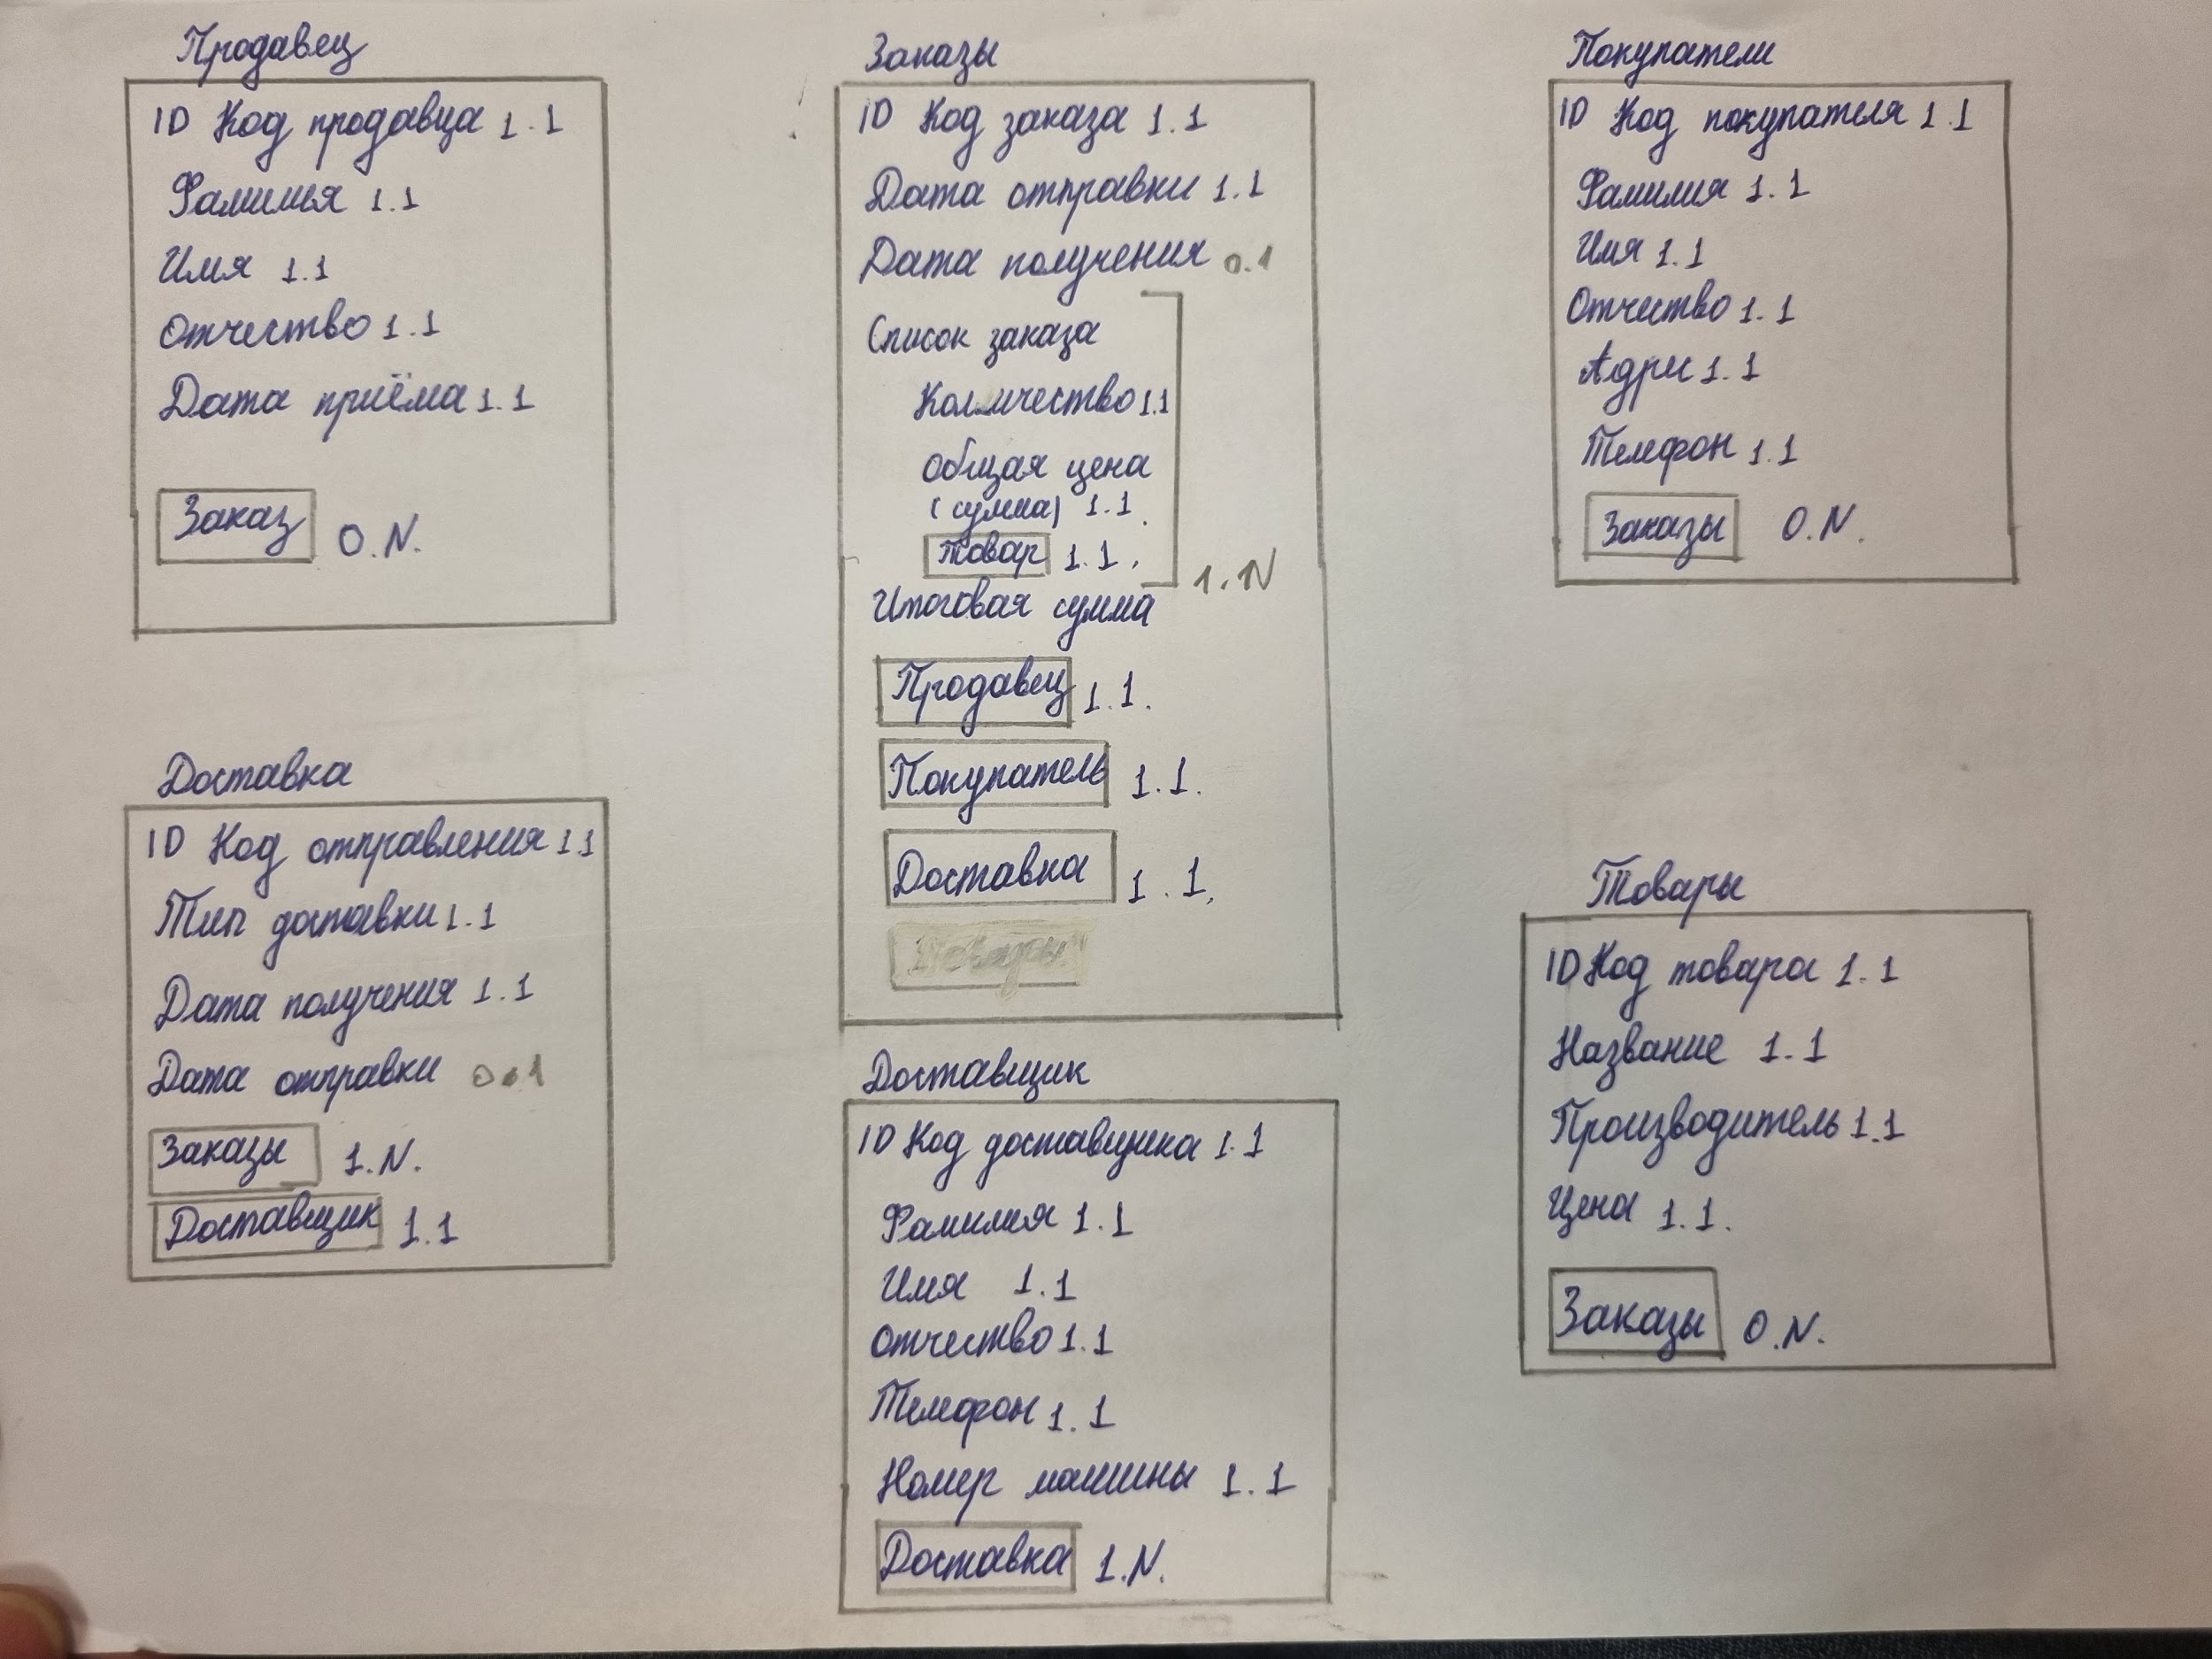 Продавец
ID Код продавца 1.1
Фамилия 1.1
Имя 1.1
Отчество 1.1
Дата приёма 1.1
Заказ 0.N.
Заказы
ID Код заказа 1.1
Дата отправки 1.1
Дата получения 0.1
Список заказа
Количество 1.1
Общая цена
(сумма) 1.1.
Товар 1.1.
1.N
Итоговая сумма
Продавец 1.1.
Покупатель 1.1.
Доставка 1.1.
Товары
Покупатели
ID Код покупателя 1.1
Фамилия 1.1
Имя 1.1
Отчество 1.1
Адрес 1.1
Телефон 1.1
Заказы 0.N.
Доставка
ID Код отправления 1.1
Тип доставки 1.1
Дата получения 1.1
Дата отправки 0.1
Заказы 1.N.
Доставщик 1.1
Доставщик
ID Код доставщика 1.1
Фамилия 1.1
Имя 1.1
Отчество 1.1
Телефон 1.1
Номер машины 1.1
Доставка 1.N.
Товары
ID Код товара 1.1
Название 1.1
Производитель 1.1
Цена 1.1.
Заказы 0.N.